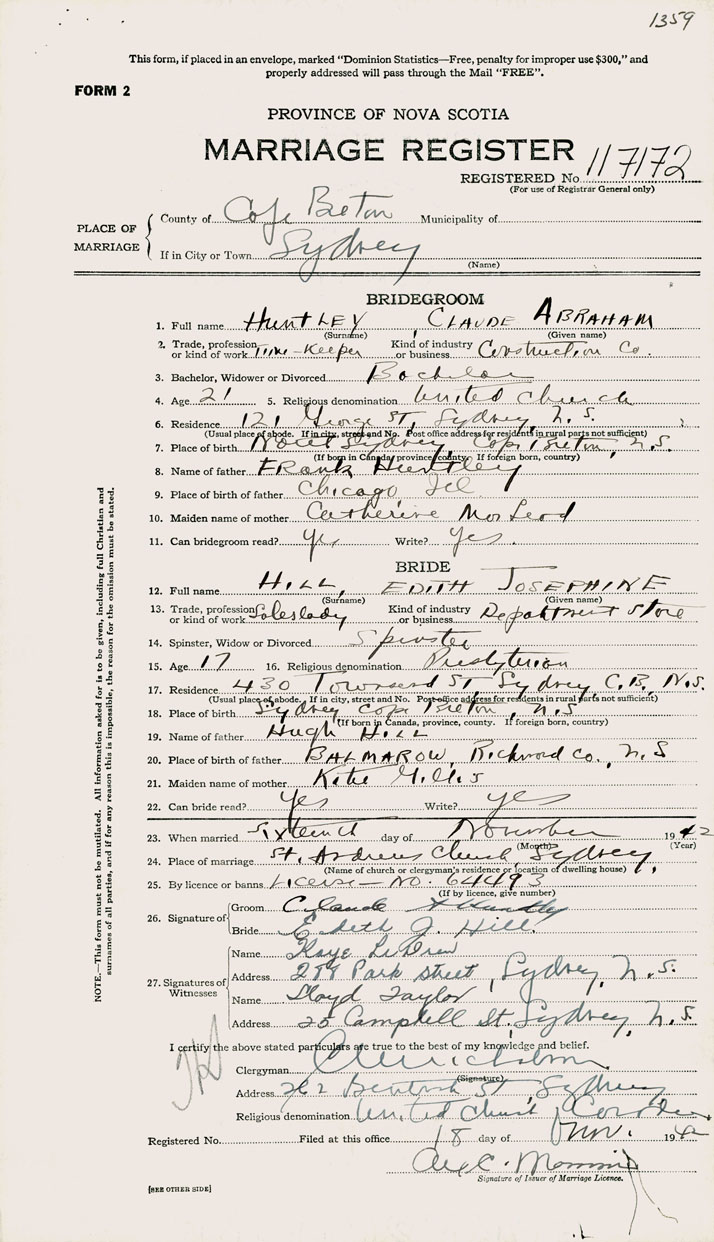 1359
This form, if placed in an envelope, marked "Dominion Statistics—Free, penalty for improper use $300," and
properly addressed will pass through the Mail "FREE".
FORM 2
PROVINCE OF NOVA SCOTIA
MARRIAGE REGISTER
REGISTERED No. 117172
(For use of Registrar General only)
PLACE OF MARRIAGE
County of Cape Breton Municipality of
If in City or Town Sydney
(Name)
BRIDEGROOM
1. Full name HUNTLEY, CLAUDE ABRAHAM
(Surname) (Given name)
2. Trade, profession or kind of work Time-Keeper Kind of industry or business Construction Co.
3. Bachelor, Widower or Divorced Bachelor
4. Age 21 5. Religious denomination United Church
6. Residence 121 George St, Sydney, N.S.
(Usual place of abode. If in city, street and No. Post office address for residents in rural parts not sufficient)
7. Place of birth North Sydney, Cape Breton, N.S.
(If born in Canada, province, county. If foreign born, country)
8. Name of father FRANK Huntley
9. Place of birth of father Chicago Ill
10. Maiden name of mother Catherine MacLeod
11. Can bridegroom read? Yes Write? Yes.
BRIDE
12. Full name HILL, EDITH JOSEPHINE
(Surname) (Given name)
13. Trade, profession or kind of work Saleslady Kind of industry or business Department Store
14. Spinster, Widow or Divorced Spinster
15. Age 17 16. Religious denomination Presbyterian
17. Residence 430 Townsend St Sydney C.B. N.S.
(Usual place of abode. If in city, street and No. Post office address for residents in rural parts not sufficient)
18. Place of birth Sydney Cape Breton, N.S
(If born in Canada, province, county. If foreign born, country)
19. Name of father Hugh HILL
20. Place of birth of father BALMAROW, Richmond Co., N.S
21. Maiden name of mother Katie Gillis
22. Can bride read? Yes Write? Yes
23. When married Sixteenth day of November 1942
(Month) (Year)
24. Place of marriage St. Andrews Church, Sydney,
(Name of church or clergyman's residence or location of dwelling house)
25. By licence or banns License - No. 64493
(If by licence, give number)
26. Signature of Groom Claude Huntley
Bride Edith J. Hill.
27. Signatures of Witnesses
Name Kaye LeDrew
Address 279 Park street, Sydney, N.S.
Name Lloyd Taylor
Address 25 Campbell St, Sydney, N.S.
I certify the above stated particulars are true to the best of my knowledge and belief.
Clergyman
(Signature)
Address St Sydney
Religious denomination United Church, Canada
Registered No. Filed at this office 18 day of Nov. 1942
Signature of Issuer of Marriage Licence.
[SEE OTHER SIDE]
NOTE.—This form must not be mutilated. All information asked for is to be given, including full Christian and
surnames of all parties, and if for any reason this is impossible, the reason for the omission must be stated.